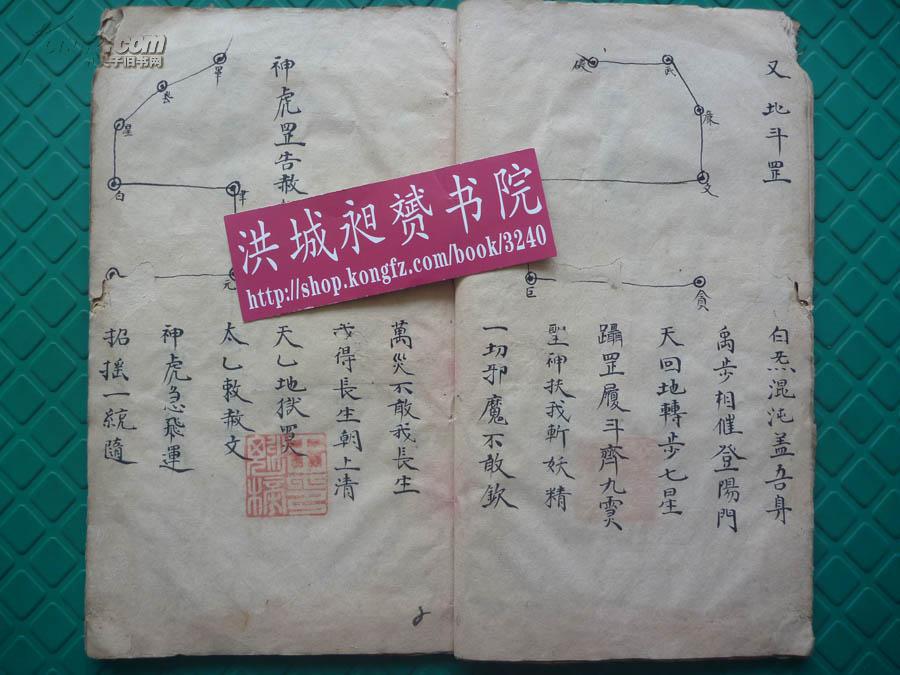 又地斗罡
破
武
廉
文
巨
貪
白炁混沌盖吾身
禹步相催登陽門
天回地轉步七星
躡罡履斗齊九霛
聖神扶我斬妖精
一切邪魔不敢欽
萬災不敢我長生
我得長生朝上清
神虎罡告赦
天乙地獄
太乙敕赦文
神虎急飛運
招搖一統隨
罡
星
白
聿
元
洪城昶赟书院
http://shop.kongfz.com/book/3240
.com
孔夫子旧书网